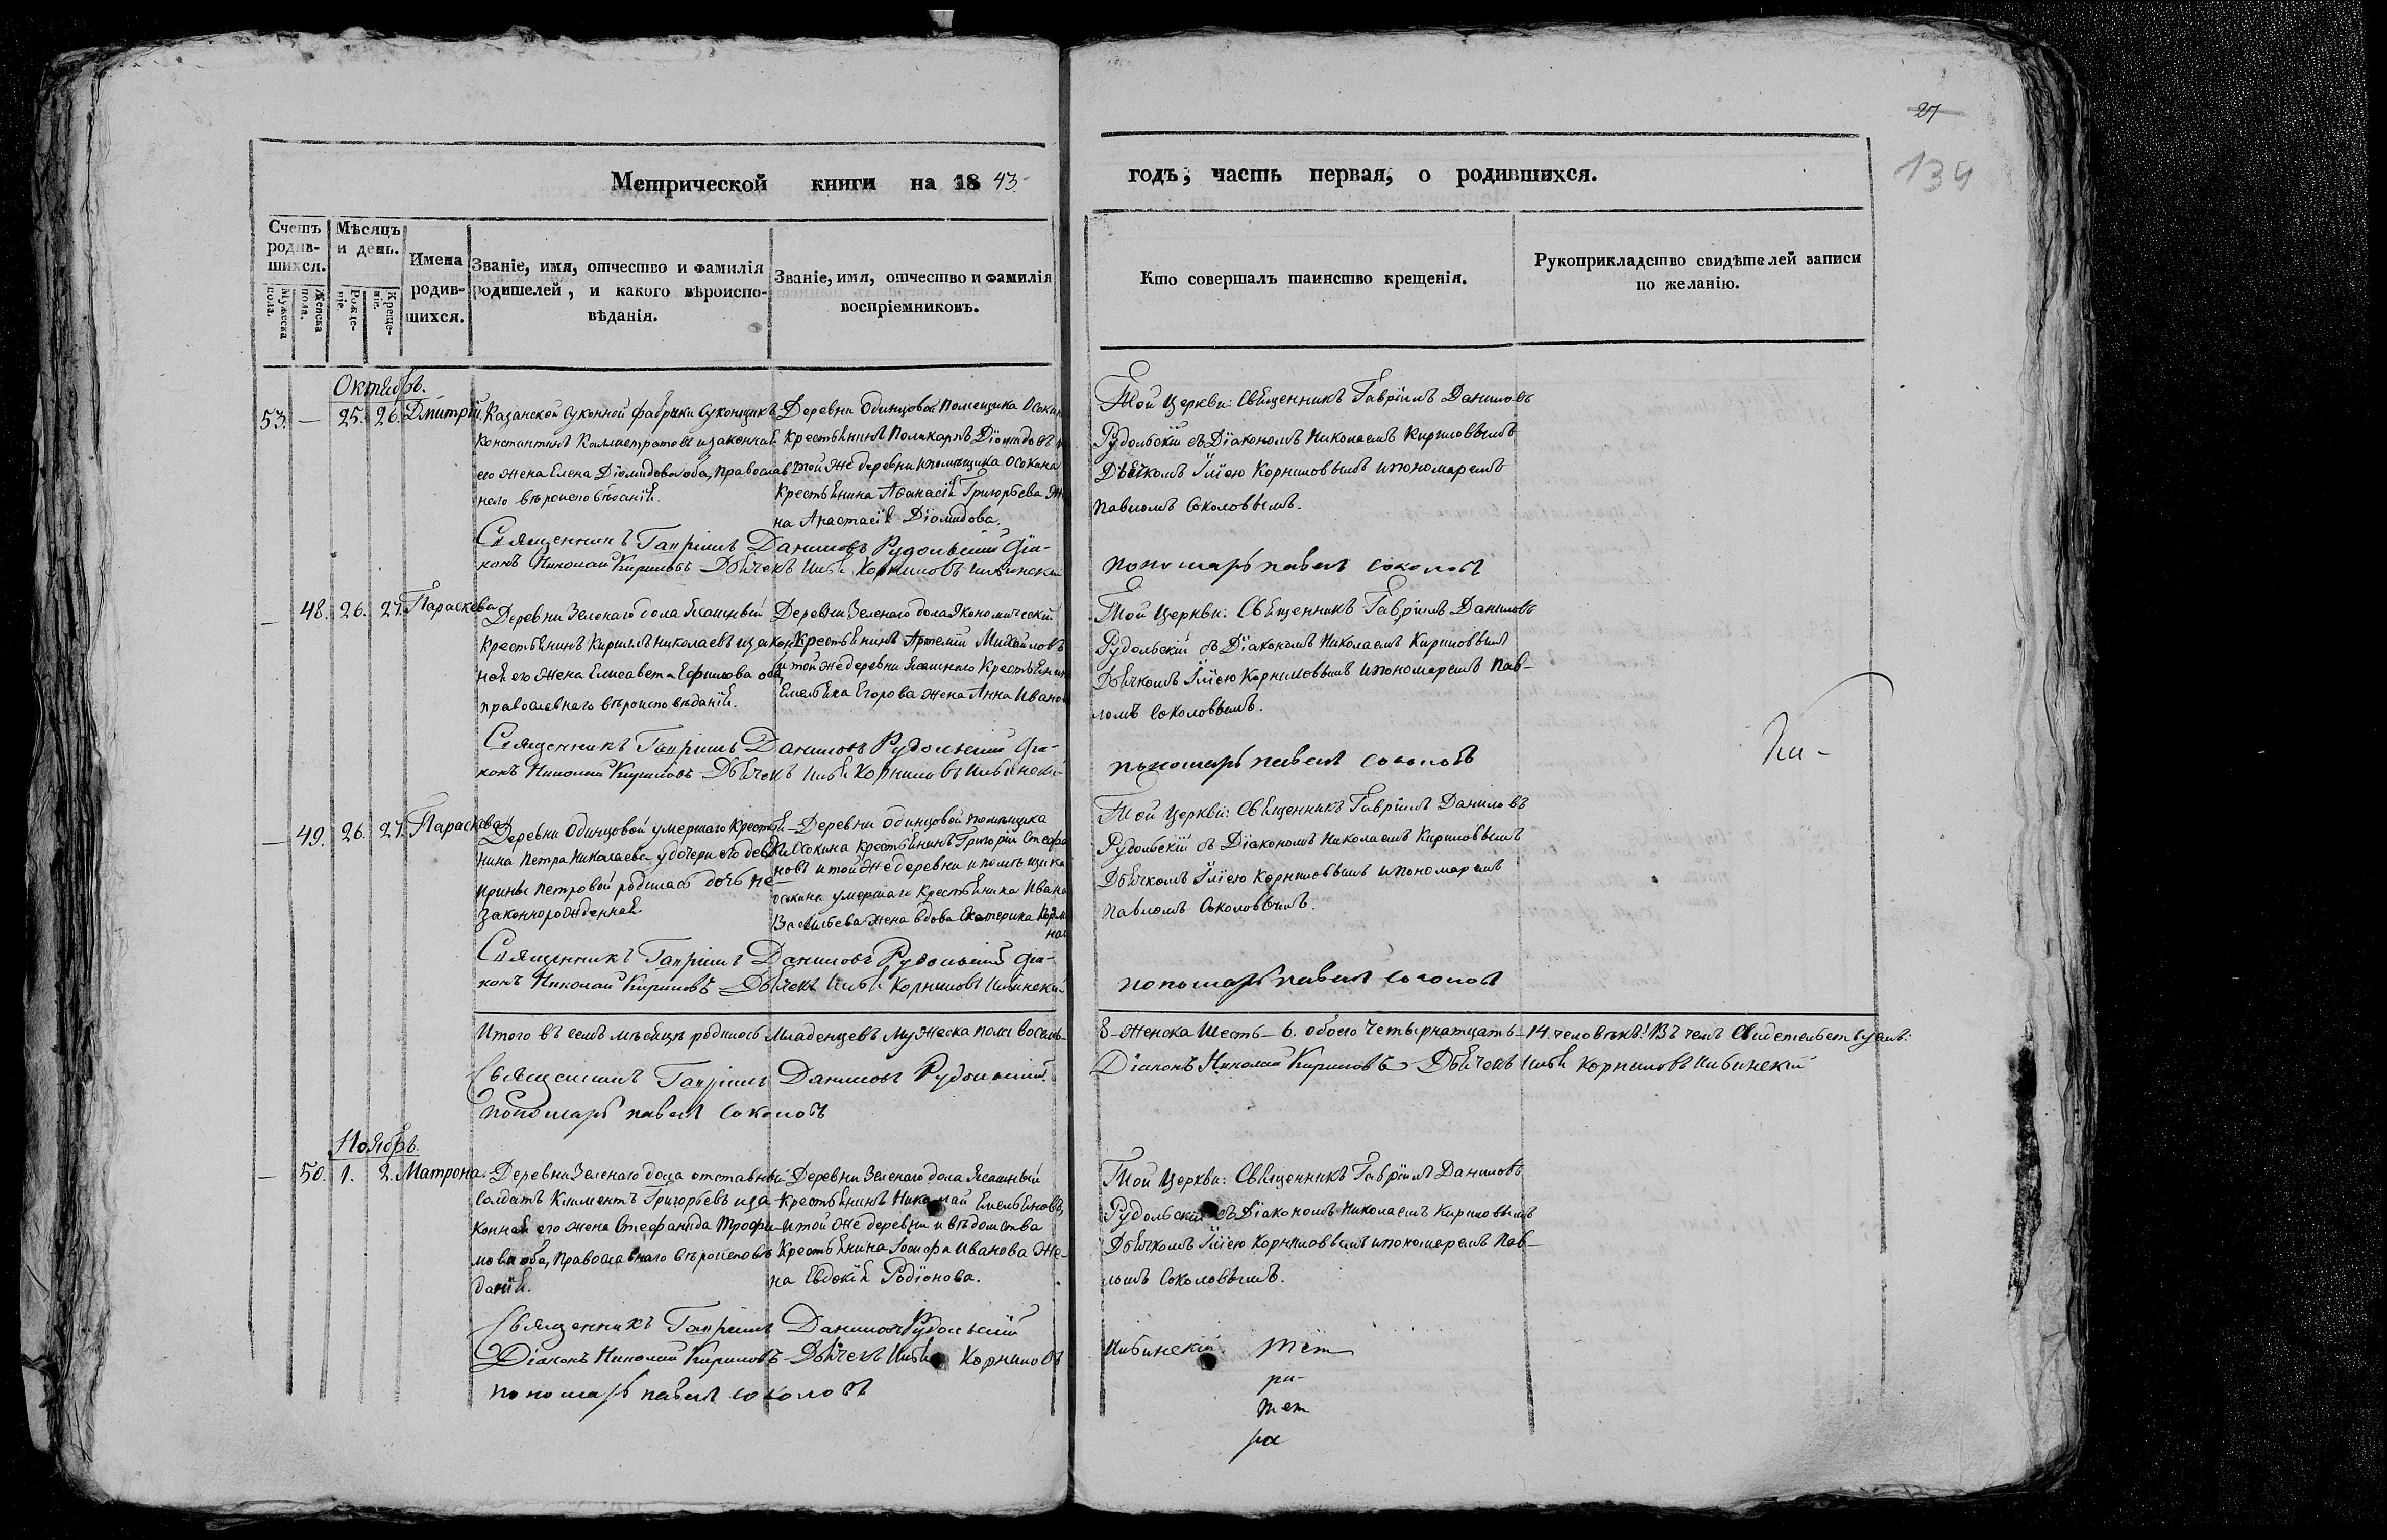 27
134
Метрической книги на 1843
годъ, часть первая, о родившихся.
Счетъ родив-шихся.
Мужеска пола.
Женска пола.
Мѣсяцъ и день.
Рожде-ніе.
Креще-ніе.
Имена родив-шихся.
Званіе, имя, отчество и фамилія родителей, и какого вѣроиспо-вѣданія.
Званіе, имя, отчество и фамилія воспріемниковъ.
Кто совершалъ таинство крещенія.
Рукоприкладство свидѣтелей записи по желанію.
Октябрь.
53. — 25. 26. Дмитрій
Казанской суконной фабрики суконщикъ
Константинъ Каллистратовъ и законная
его жена Елена Діомидова оба, православ
наго вѣроисповѣданія.
Деревни Одинцовой помещика Осокин
крестьянинъ Поликарпъ Діомидовъ и
той же деревни и помѣщика Осокина
крестьянина Аѳанасія Григорьева же
на Анастасія Діомидова.
Той Церкви: Священникъ Гавріилъ Даниловъ
Рудольскій съ Діакономъ Николаемъ Кириловымъ
Дьячкомъ Иліею Корниловымъ и пономаремъ
Павломъ Соколовымъ.
Священникъ Гавріилъ Даниловъ Рудольскій Діа-
конъ Николай Кириловъ Дьячекъ Илья Корниловъ Ильинскій
пономарь павелъ соколовъ
— 48. 26. 27. Параскева
Деревни Зеленаго дола Ясашный
крестьянинъ Кирилъ Николаевъ и закон
ная его жена Елисавета Ефимова оба,
православнаго вѣроисповѣданія.
Деревни Зеленаго дола Экономический
крестьянинъ Артемій Михайловъ
и той же деревни Ясашнаго крестьянин
Емельяна Егорова жена Анна Иванов
Той Церкви: Священникъ Гавріилъ Даниловъ
Рудольскій съ Діакономъ Николаемъ Кириловымъ
Дьячкомъ Иліею Корниловымъ и пономаремъ Пав-
ломъ Соколовымъ.
Священникъ Гавріилъ Даниловъ Рудольскій Діа-
конъ Николай Кириловъ Дьячекъ Илья Корниловъ Ильинскій
пономарь павелъ соколовъ
— 49. 26. 27. Параскева
Деревни Одинцовой умершаго крестья-
нина Петра Николаева у дочери его девки
Ирины Петровой родилась дочь не-
законнорожденная.
Деревни Одинцовой помѣщика
Осокина крестьянинъ Григорій Стефа
новъ и той же деревни и помѣщика
Осокина умершаго крестьянина Ивана
Васильева жена вдова Екатерина
Той Церкви: Священникъ Гавріилъ Даниловъ
Рудольскій съ Діакономъ Николаемъ Кириловымъ
Дьячкомъ Иліею Корниловымъ и пономаремъ
Павломъ Соколовымъ.
Священникъ Гавріилъ Даниловъ Рудольскій Діа-
конъ Николай Кириловъ Дьячекъ Илья Корниловъ Ильинскій
пономарь павелъ соколовъ
Итого въ семъ мѣсяцѣ родилось младенцевъ мужеска пола восемь-
8- женска шесть- 6. обоего четырнатцать- 14. человѣкъ! Въ чемъ свидетельствуемъ:
Священникъ Гавріилъ Даниловъ Рудольский
Діаконъ Николай Кириловъ Дьячекъ Илья Корниловъ Ильинскій
пономарь павелъ соколовъ
Ноябрь.
— 50. 1. 2. Матрона.
Деревни Зеленаго дола отставный
солдатъ Климентъ Григорьевъ и за
конная его жена Стефанида Трофи-
мова оба, православнаго вѣроисповѣ
данія.
Деревни Зеленаго дола Ясашный
крестьянинъ Николай Емельяновъ,
и той же деревни и вѣдомства
крестьянина Іосифа Иванова же-
на Евдокія Родіонова.
Той Церкви: Священникъ Гавріилъ Даниловъ
Рудольскій съ Діакономъ Николаемъ Кириловымъ
Дьячкомъ Иліею Корниловымъ и пономаремъ Пав-
ломъ Соколовымъ.
Священникъ Гавріилъ Даниловъ Рудольскій
Діаконъ Николай Кириловъ Дьячекъ Илья Корниловъ
Ильинскій
пономарь павелъ соколовъ